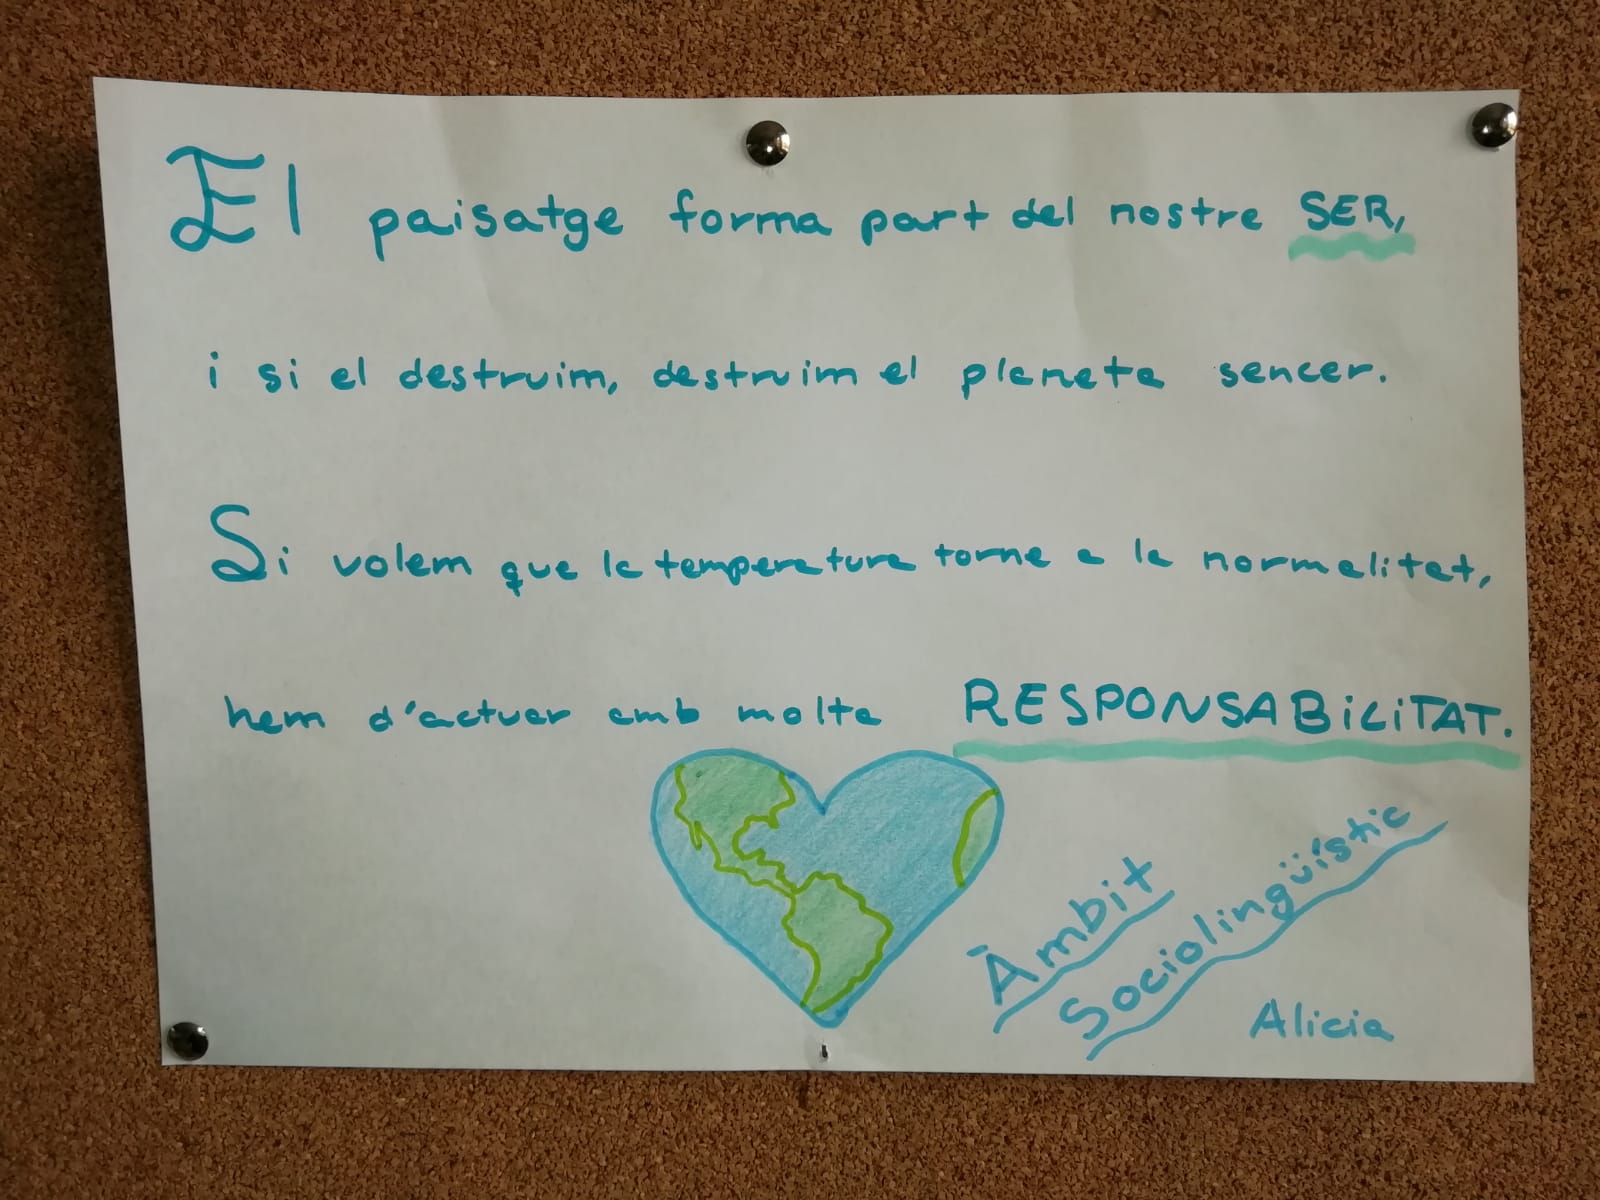 El paisatge forma part del nostre SER,
i si el destruim, destruim el planeta sencer.
Si volem que la temperatura torne a la normalitat,
hem d'actuar amb molta RESPONSABiLiTAT.
Àmbit
Sociolingüístic
Alicia